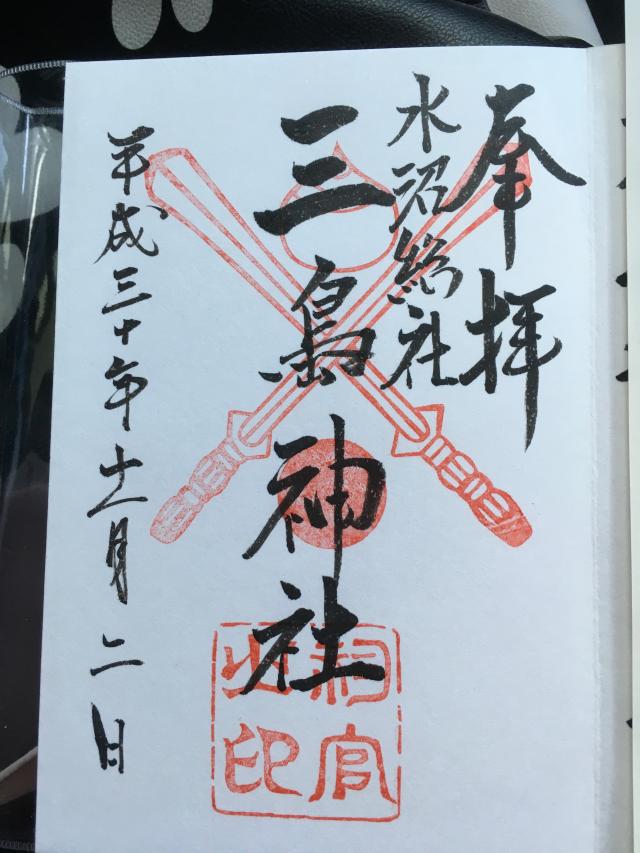 奉拝
水沼総社
三島神社
平成三十年十一月二日
祠官
之印